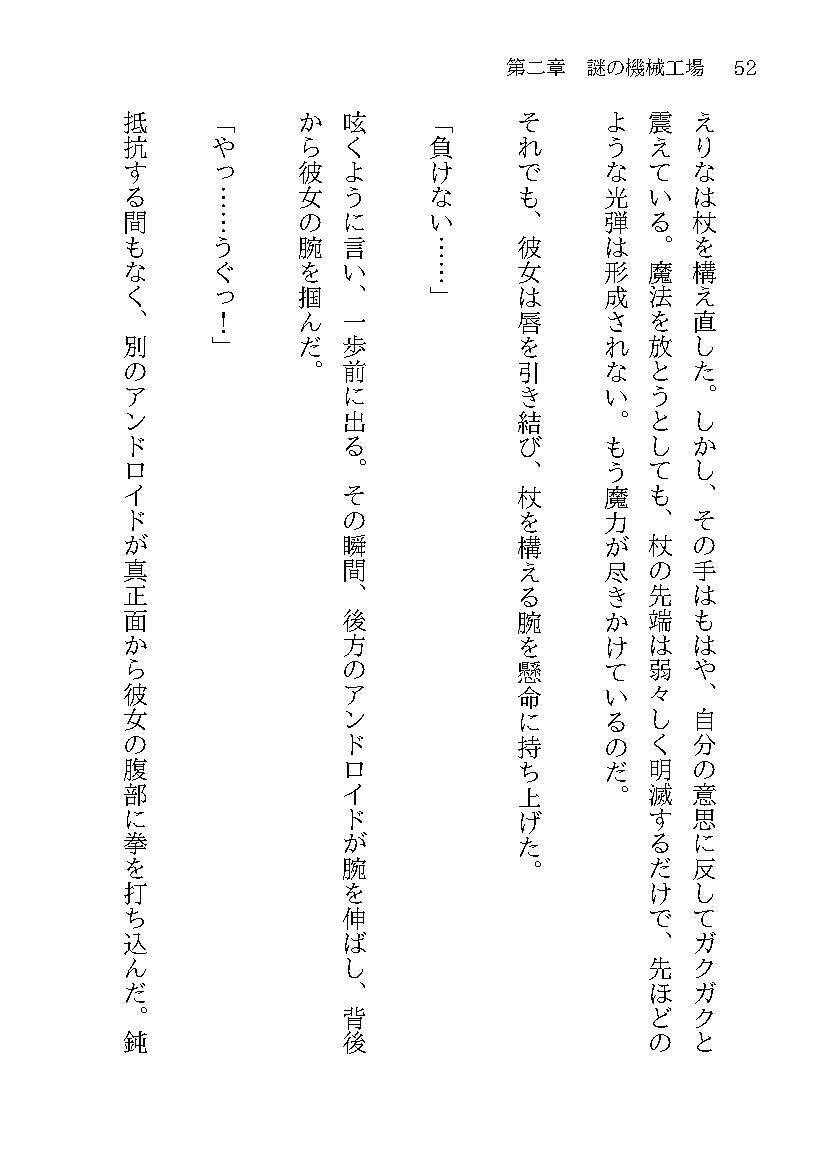 第二章　謎の機械工場　52
えりなは杖を構え直した。しかし、その手はもはや、自分の意思に反してガクガクと
震えている。魔法を放とうとしても、杖の先端は弱々しく明滅するだけで、先ほどの
ような光弾は形成されない。もう魔力が尽きかけているのだ。
それでも、彼女は唇を引き結び、杖を構える腕を懸命に持ち上げた。
「負けない……」
呟くように言い、一歩前に出る。その瞬間、後方のアンドロイドが腕を伸ばし、背後
から彼女の腕を掴んだ。
「やっ……うぐっ！」
抵抗する間もなく、別のアンドロイドが真正面から彼女の腹部に拳を打ち込んだ。鈍